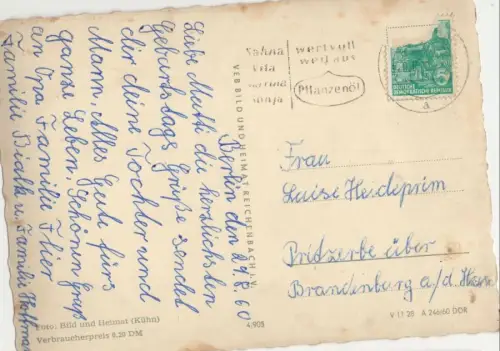 Berlin den 29.8.60
Liebe Mutti die herzlichsten
Geburtstags Grüße sendet
dir deine Tochter und
Mann, Alles Gute fürs
ganze Leben, Schönen Gruß
an Opa Familie
Familie u. Familie
VEB BILD UND HEIMAT REICHENBACH i. V.
wertvoll
weil aus
Pflanzenöl
DEUTSCHE
DEMOKRATISCHE REPUBLIK
5
a
Frau
Luise Heideprim
Pritzerbe über
Brandenburg a/d Havel
Foto: Bild und Heimat (Kühn)
Verbraucherpreis 0.20 DM
4/905
V 11 28 A 246/60 DDR